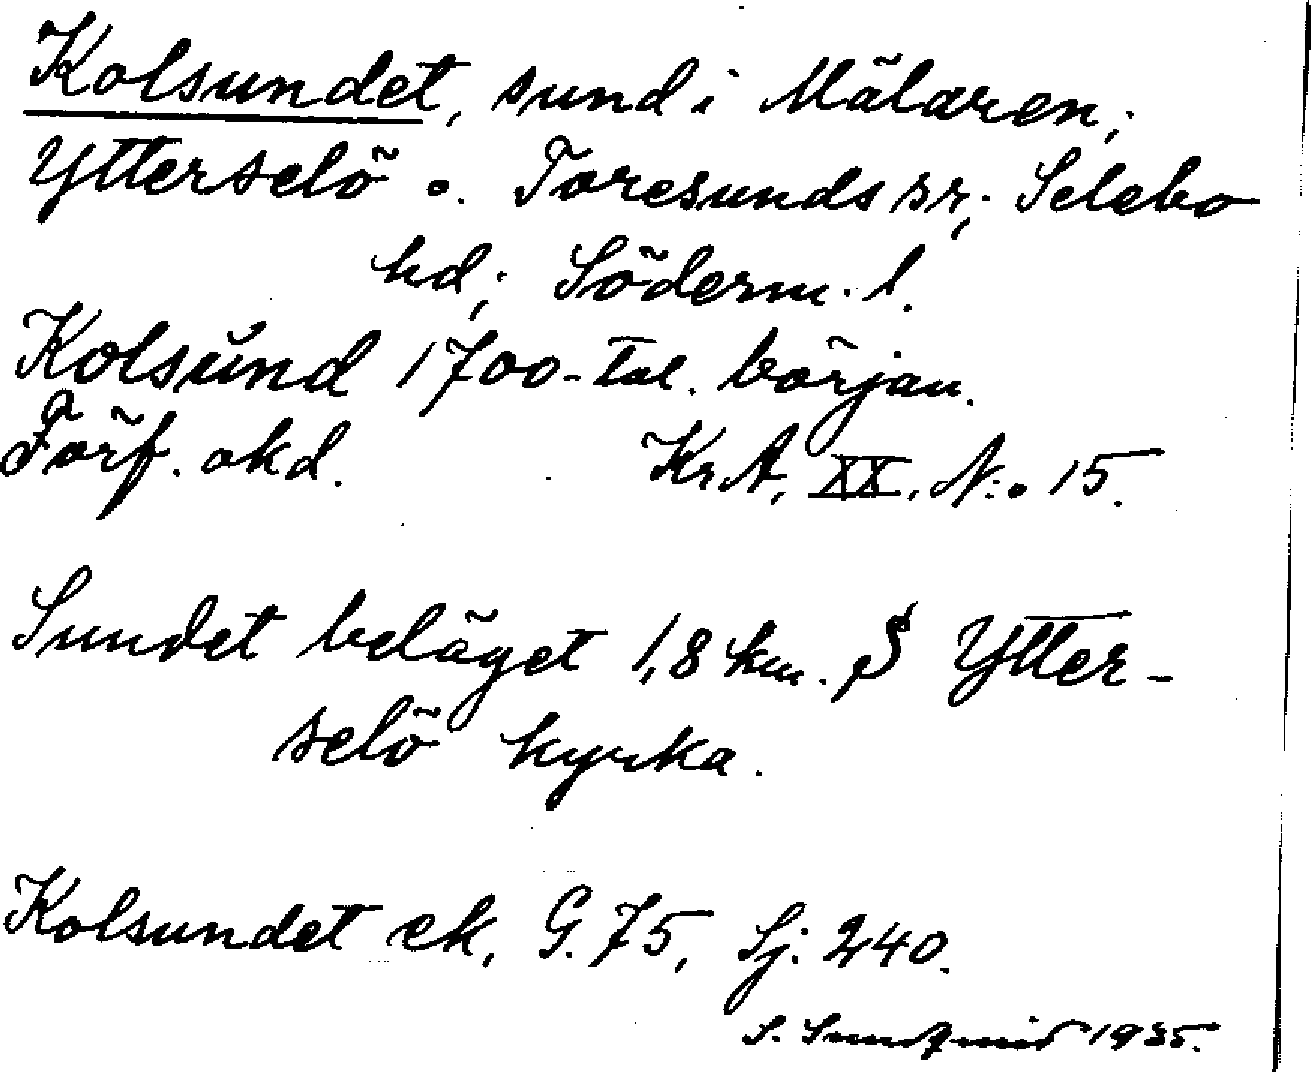 Kolsundet, sund i Mälaren;
Ytterselö o. Toresunds sr; Selebo
hd; Söderm. l.
Kolsŭnd 1700-tal. början.
Förf. okd. Kr.A. XX. N:o 15.
Sundet beläget 1,8 km. S Ytter-
selö kyrka.
Kolsundet ek, G. 75, Sj. 240.
S. Sundqvist 1935.